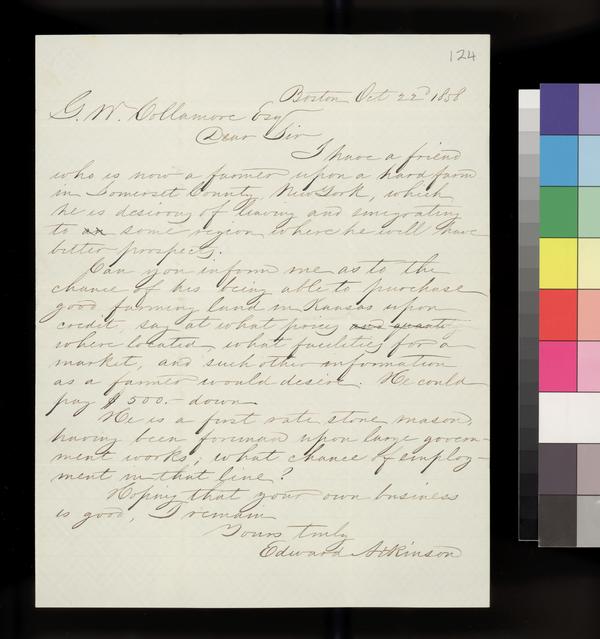 124
Boston Oct 22d 1858
G. W. Collamore Esq
Dear Sir
I have a friend
who is now a farmer upon a hard farm
in Somerset County, New York, which
he is desirous of leaving and emigrating
to an some region where he will have
better prospects.
Can you inform me as to the
chance of his being able to purchase
good farming land in Kansas upon
credit, say at what prices and quantity
where located, what facilities for a
market, and such other information
as a farmer would desire. He could
pay $500.- down
He is a first rate stone mason,
having been foreman upon large govern-
ment works; what chance of employ-
ment in that line?
Hoping that your own business
is good, I remain
Yours truly
Edward Atkinson